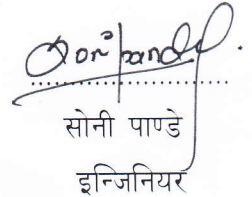 Soni Pandey.
सोनी पाण्डे
इन्जिनियर